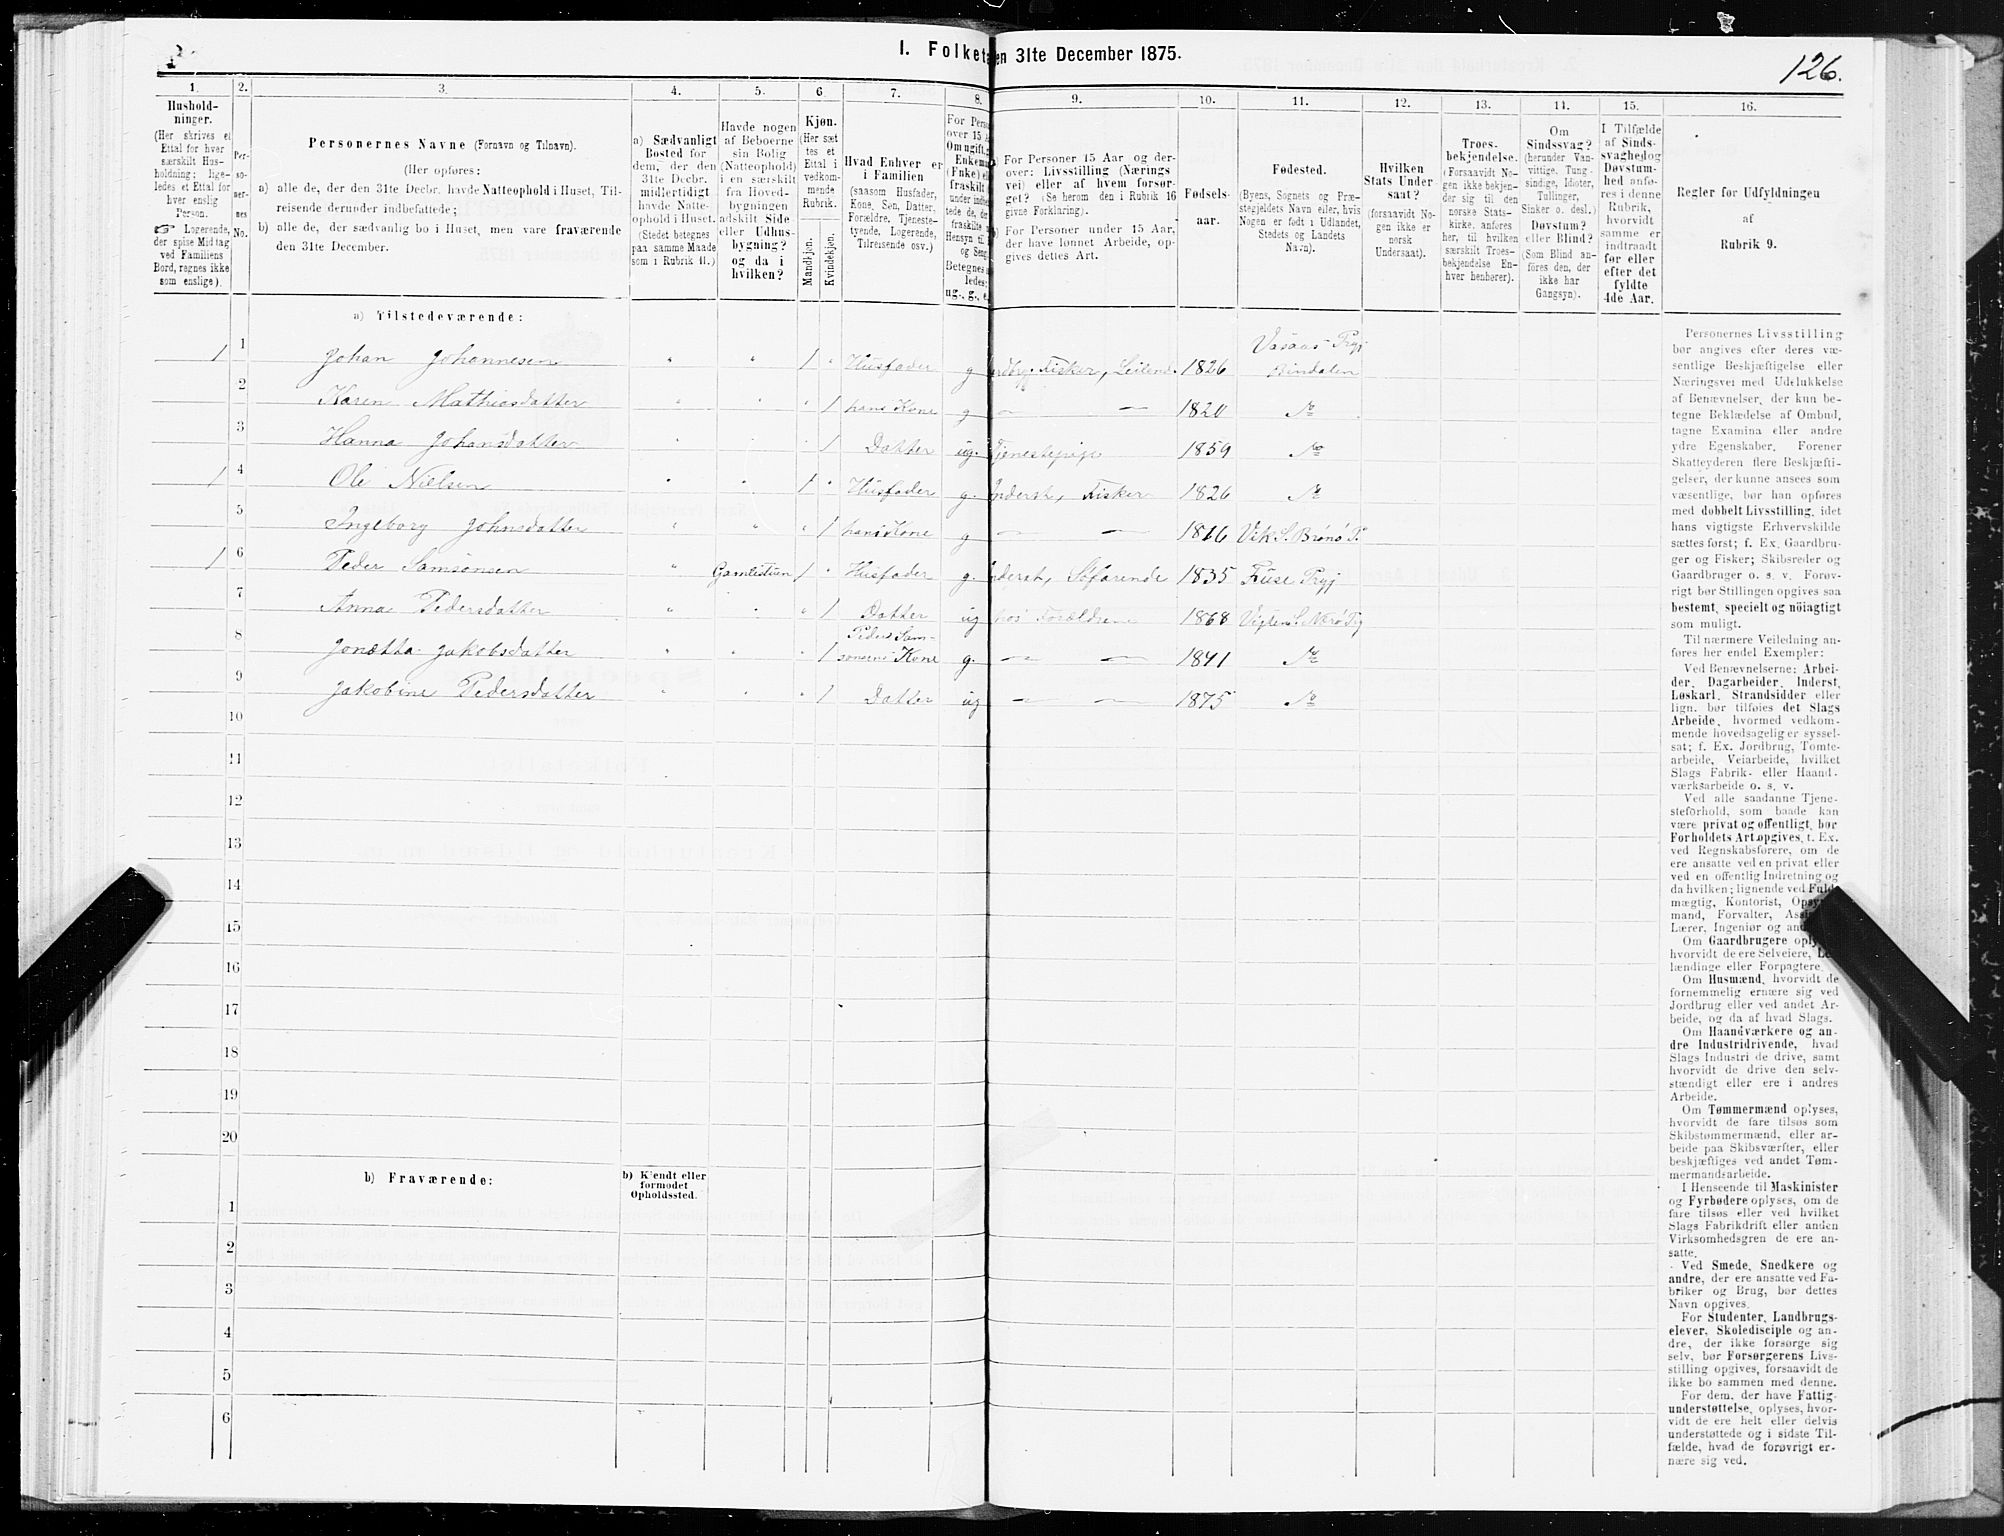 I. Folketa en 31te December 1875.
126.
1.
2.
3.
4.
5.
6
7.
8.
9.
10.
11.
12.
13.
14.
15.
16.
Hushold-
ninger.
(Her skrives et
Ettal for hver
særskilt Hus-
holdning; lige-
ledes et Ettal for
hver enslig
Person.
☞ Logerende,
der spise Middag
ved Familiens
Bord, regnes ikke
som enslige).
Per-
so-
ner-
nes
No.
Personernes Navne (Fornavn og Tilnavn).
(Her opføres:
a) alle de, der den 31te Decbr. havde Natteophold i Huset, Til-
reisende derunder indbefattede;
b) alle de, der sædvanlig bo i Huset, men vare fraværende
den 31te December.
a) Sædvanligt
Bosted for
dem, der den
31te Decbr.
midlertidigt
havde Natte-
ophold i Huset.
(Stedet betegnes
paa samme Maade
som i Rubrik 11.)
Havde nogen
af Beboerne
sin Bolig
(Natteophold)
i en særskilt
fra Hoved-
bygningen
adskilt Side
eller Udhus-
bygning?
og da i
hvilken?
Kjøn.
(Her sæt
tes et
Ettal i
vedkom-
mende
Rubrik.
Mandkjøn.
Kvindekjøn.
Hvad Enhver er
i Familien
(saasom Husfader,
Kone, Søn, Datter,
Forældre, Tjeneste-
tyende, Logerende,
Tilreisende osv.)
For Perso
over 15 A
Om ugift, g
Enkema
(Fnke) el
fraskilt
Betegnes
ledes:
ug., g., e.
For Personer 15 Aar og der-
over: Livsstilling (Nærings
vei) eller af hvem forsør-
get? (Se herom den i Rubrik 16
givne Forklaring).
For Personer under 15 Aar,
der have lønnet Arbeide, op-
gives dettes Art.
Fødsels-
aar.
Fødested.
(Byens, Sognets og Præ-
stegjeldets Navn eller, hvis
Nogen er født i Udlandet,
Stedets og Landets
Navn).
Hvilken
Stats Under
saat?
(forsaavidt No-
gen ikke er
norsk
Undersaat).
Troes-
bekjendelse.
(Forsaavidt No-
gen ikke bekjen-
der sig til den
norske Stats-
kirke, anføres
her, til hvilken
særskilt Troes-
bekjendelse En-
hver henhører).
Om
Sindssvag?
(herunder Van-
vittige, Tung-
sindige, Idioter,
Tullinger,
Sinker o. desl.)
Døvstum?
eller Blind?
(Som Blind an-
føres den, der
ikke har
Gangsyn).
I Tilfælde
af Sinds-
svaghed og
Døvstum-
hed anfø-
res i denne
Rubrik,
hvorvidt
samme er
indtraadt
før eller
efter det
fyldte
4de Aar.
Regler for Udfyldningen
af
Rubrik 9.
a) Tilstedeværende:
1 1 Johan Johannesen " " 1 " Husfader g Jordbr. Fisker, Leilend. 1826 Vasaas Prgj Bindalen
2 Karen Mathiasdatter " " " 1 hans Kone g — — 1820 do
3 Hanna Johansdatter " " " 1 Datter ug. Tjenestepige 1859 do
1 4 Ole Nielsen " " 1 " Husfader g. Inderst, Fisker 1826 do
5 Ingeborg Johnsdatter " " " 1 hans Kone g — — 1816 Vik S. Brønø P.
1 6 Peder Samsonsen " Gamlestuen 1 " Husfader g. Inderst, Søfarende 1835 Fuse Prgj
7 Anna Pedersdatter " " " 1 Datter ug hos Forældrene 1868 Vigten S. Nærø Pg
8 Jonetta Jakobsdatter " " " 1 Peder Sam-
sonsens Kone g. — — 1841 do
9 Jakobine Pedersdatter " " " 1 Datter ug — — 1875 do
10
11
12
13
14
15
16
17
18
19
20
b) Fraværende:
b) Kjendt eller
formodet
Opholdssted.
1
2
3
4
5
6
Personernes Livsstilling
bør angives efter deres væ-
sentlige Beskjæftigelse eller
Næringsvei med Udelukkelse
af Benævnelser, der kun be-
tegne Beklædelse af Ombud,
tagne Examina eller andre
ydre Egenskaber. Forener
Skatteyderen flere Beskjæfti-
gelser, der kunne ansees som
væsentlige, bør han opføres
med dobbelt Livsstilling, idet
hans vigtigste Erhvervskilde
sættes først; f. Ex. Gaardbru-
ger og Fisker; Skibsreder og
Gaardbruger o. s. v. Forøv-
rigt bør Stillingen opgives saa
bestemt, specielt og nöiagtigt
som muligt.
Til nærmere Veiledning an-
føres her endel Exempler:
Ved Benævnelserne: Arbei-
der, Dagarbeider, Inderst,
Løskarl, Strandsidder eller
lign. bør tilføies det Slags
Arbeide, hvormed vedkom-
mende hovedsagelig er syssel-
sat; f. Ex. Jordbrug, Tomte-
arbeide, Veiarbeide, hvilket
Slags Fabrik- eller Haand-
værksarbeide o. s. v.
Ved alle saadanne Tjene-
steforhold, som baade kan
være privat og offentligt, bør
Forholdets Art opgives, t. Ex.
ved Regnskabsførere, om de
ere ansatte ved en privat eller
ved en offentlig Indretning og
da hvilken; lignende ved Fuld-
mægtig, Kontorist, Opsyns-
mand, Forvalter, Assi
Lærer, Ingeniør og an
Om Gaardbrugere oply
hvorvidt de ere Selveiere, Lei-
lændinge eller Forpagtere.
Om Husmænd, hvorvidt de
fornemmelig ernære sig ved
Jordbrug eller ved andet Ar-
beide, og da af hvad Slags.
Om Haandværkere og an-
dre Industridrivende, hvad
Slags Industri de drive, samt
hvorvidt de drive den selv-
stændigt eller ere i andres
Arbeide.
Om Tømmermænd oplyses,
hvorvidt de fare tilsøs som
Skibstømmermænd, eller ar-
beide paa Skibsværfter, eller
beskjæftiges ved andet Tøm-
mermandsarbeide.
I Henseende til Maskinister
og Fyrbødere oplyses, om de
fare tilsøs eller ved hvilket
Slags Fabrikdrift eller anden
Virksomhedsgren de ere an-
satte.
Ved Smede, Snedkere og
andre, der ere ansatte ved Fa-
briker og Brug, bør dettes
Navn opgives.
For Studenter, Landbrugs-
elever, Skoledisciple og an-
dre, der ikke forsørge sig
selv, bør Forsørgerens Livs-
stilling opgives, forsaavidt de
ikke bo sammen med denne.
For dem, der have Fattig-
understøttelse, oplyses, hvor-
vidt de ere helt eller delvis
understøttede og i sidste Til-
fælde, hvad de forøvrigt er-
nære sig ved.